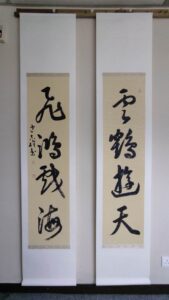 雲鶴遊天
飛鴻戲海